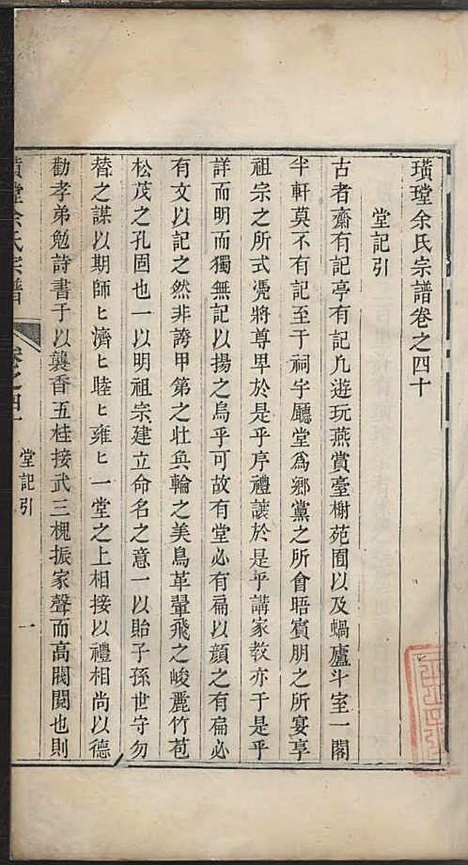 璜瑝余氏宗譜卷之四十
堂記引
古者齋有記亭有記凡遊玩燕賞臺榭苑囿以及蝸廬斗室一閣
半軒莫不有記至于祠宇廳堂為鄉黨之所會晤賓朋之所宴享
祖宗之所式凴將尊卑於是乎序禮讓於是乎講家教亦于是乎
詳而明而獨無記以揚之烏乎可故有堂必有扁以顏之有扁必
有文以記之然非誇甲第之壯奐輪之美鳥革翬飛之峻麗竹苞
松茂之孔固也一以明祖宗建立命名之意一以貽子孫世守勿
替之謀以期師ヒ濟ヒ睦ヒ雍ヒ一堂之上相接以禮相尚以德
勸孝弟勉詩書于以龔香五桂接武三槐振家聲而高閥閱也則
璜瑝余氏宗譜
卷之四十
堂記引
一